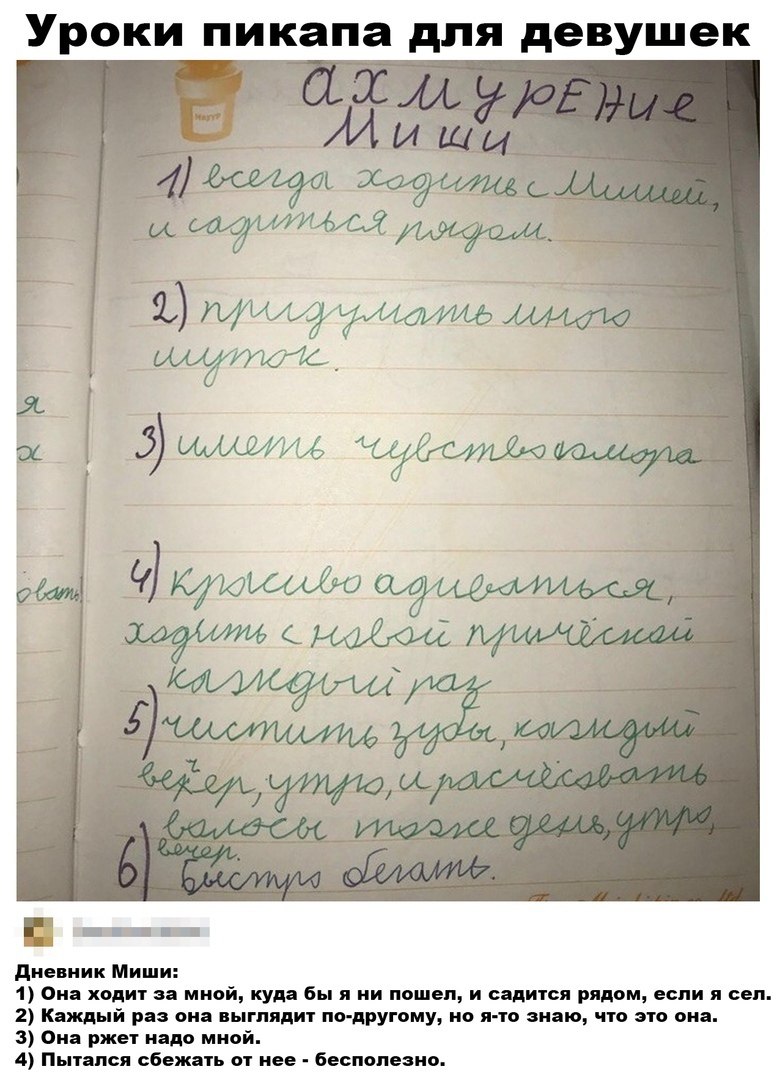 Уроки пикапа для девушек
Йогурт
АХМУРЕНИЕ
Миши
1) всегда ходить с Мишей,
и садиться рядом.
2) придумать много
шуток.
я
х
3) иметь чувство юмора
4) красиво адиваться,
овать
ходить с новой причёской
каждый раз
5) чистить зубы, каждый
вечер, утро, и расчёсовать
валосы тоже день, утро,
вечер.
6) Быстро бегать.
Дневник Миши:
1) Она ходит за мной, куда бы я ни пошел, и садится рядом, если я сел.
2) Каждый раз она выглядит по-другому, но я-то знаю, что это она.
3) Она ржет надо мной.
4) Пытался сбежать от нее - бесполезно.